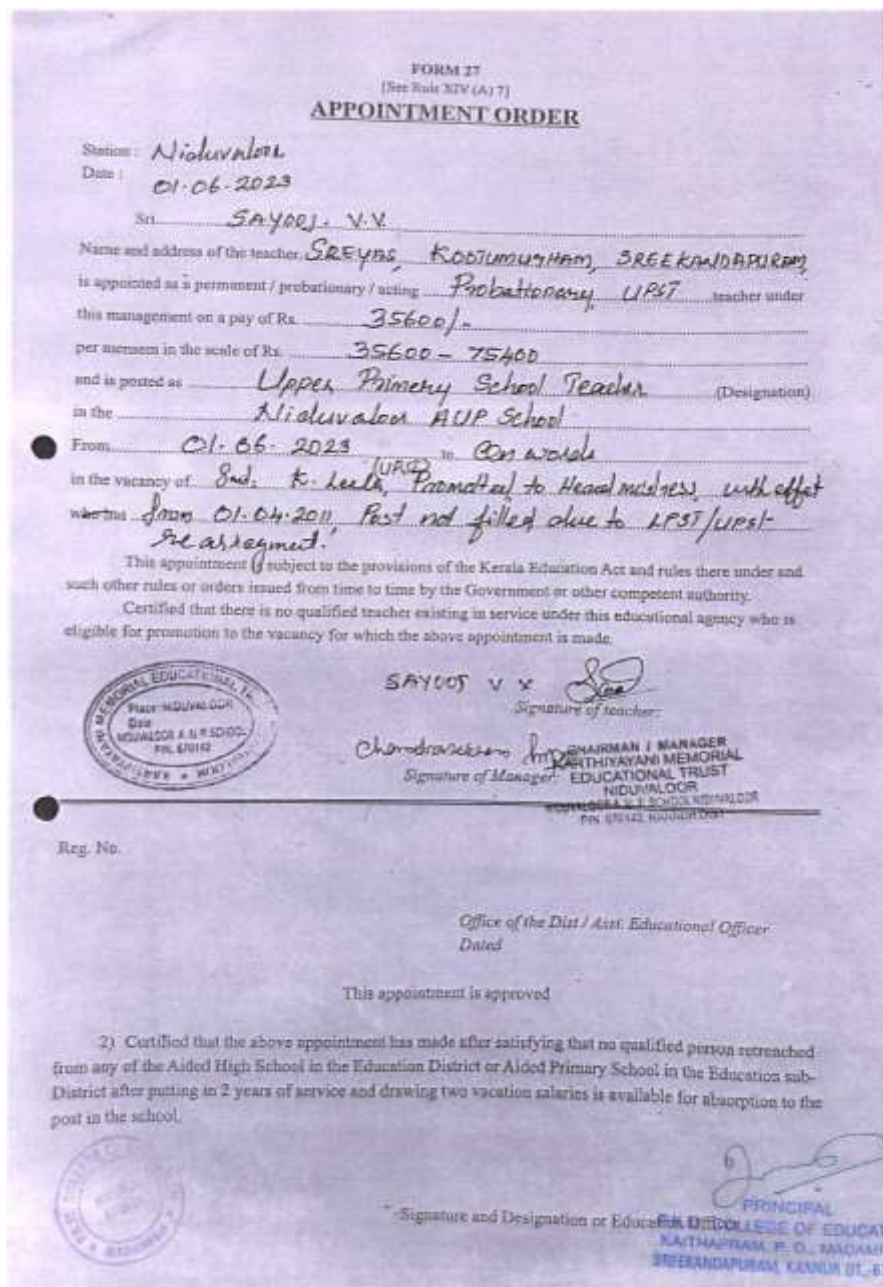 FORM 27
[See Rule XIV (A) 7]
APPOINTMENT ORDER
Station : Niduvaloor
Date : 01-06-2023
Sri SAYOOJ. V.V.
Name and address of the teacher SREYAS, KODIUMUGHAM, SREEKANDAPURAM,
is appointed as a permanent / probationary / acting Probationary UPST teacher under
this management on a pay of Rs. 35600/-
per mensem in the scale of Rs. 35600 - 75400
and is posted as Upper Primery School Teacher (Designation)
in the Niduvaloor AUP School
From 01-06-2023 to Onwords
in the vacancy of Smt. K. Leela, Promotted to Headmistress, with effet
who has from 01-04-2011, Post not filled due to LPST/UPST
This appointment is subject to the provisions of the Kerala Education Act and rules there under and
such other rules or orders issued from time to time by the Government or other competent authority.
Certified that there is no qualified teacher existing in service under this educational agency who is
eligible for promotion to the vacancy for which the above appointment is made.
MEMORIAL EDUCATIONAL
Place: NIDUVALOOR
Date
NIDUVALOOR A.U.P. SCHOOL
PIN. 670142
SAYOOJ V V
Signature of teacher:
Chandrasekharan
Signature of Manager:
CHAIRMAN / MANAGER
KARTHIYAYANI MEMORIAL
EDUCATIONAL TRUST
NIDUVALOOR
NIDUVALOOR A. U. P. SCHOOL NIDUVALOOR
PIN. 670142, KANNUR Dist
Reg. No.
Office of the Dist / Asst. Educational Officer
Dated
This appointment is approved
2) Certified that the above appointment has made after satisfying that no qualified person retrenched
from any of the Aided High School in the Education District or Aided Primary School in the Education sub-
District after putting in 2 years of service and drawing two vacation salaries is available for absorption to the
post in the school.
Signature and Designation or Education Officer
PRINCIPAL
COLLEGE OF EDUCAT
KAITHAPRAM, P. O., MADAM
SREEKANDAPURAM, KANNUR DT.